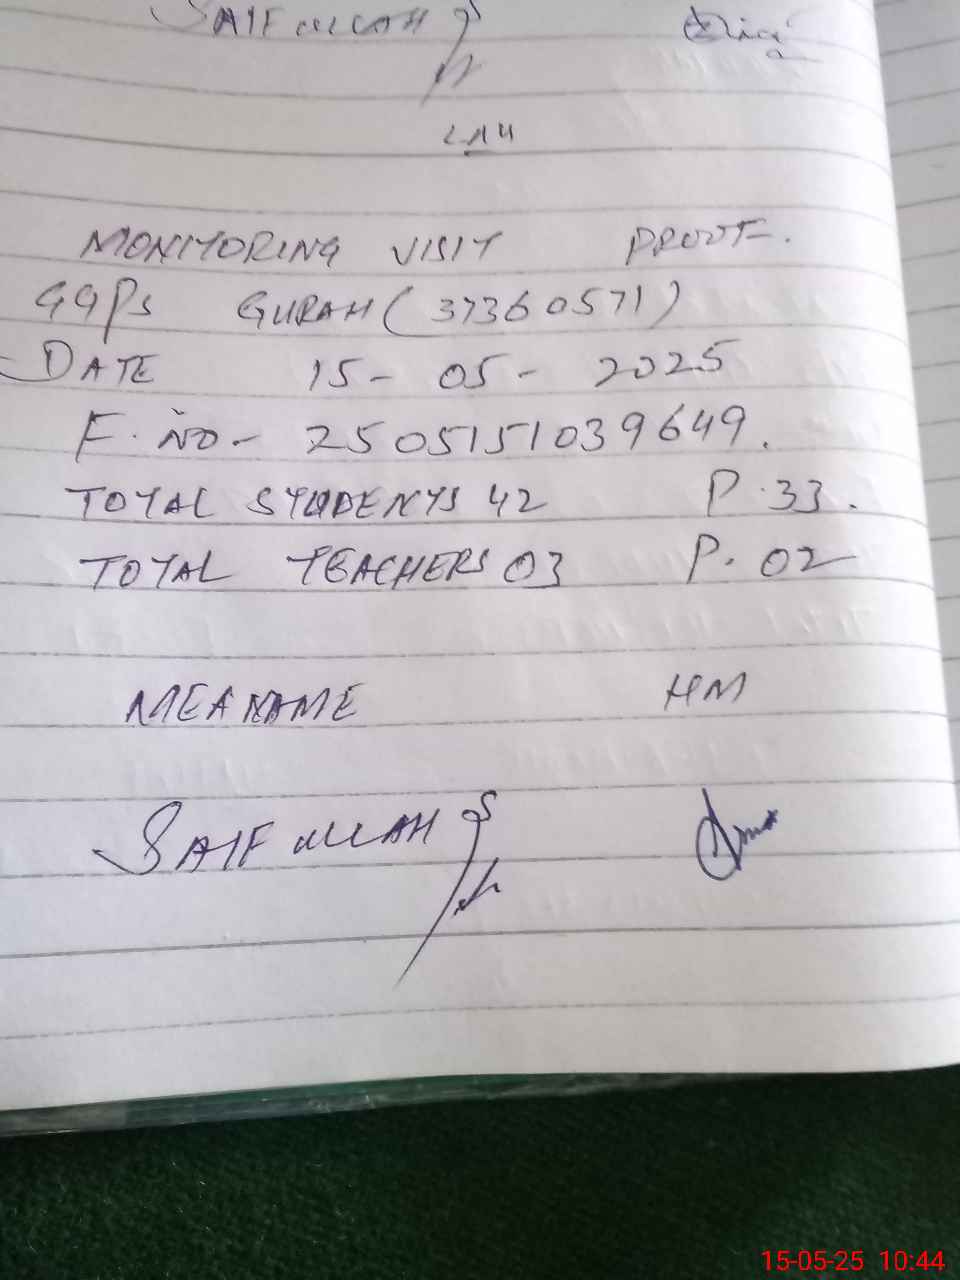 SAIF ULLAH
MONITORING VISIT PROOF.
GGPS GURAH (37360571)
DATE 15-05-2025
F. NO - 2505151039649.
TOTAL STUDENTS 42 P.33.
TOTAL TEACHERS 03 P.02
MEA NAME HM
SAIF ULLAH
15-05-25 10:44